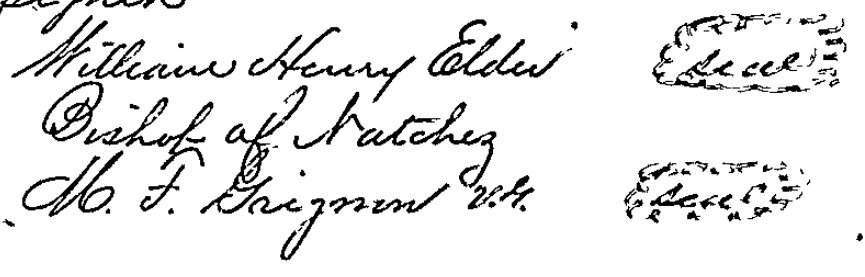 William Henry Elder seal
Bishop of Natchez
M. F. Grignon V.G. seal